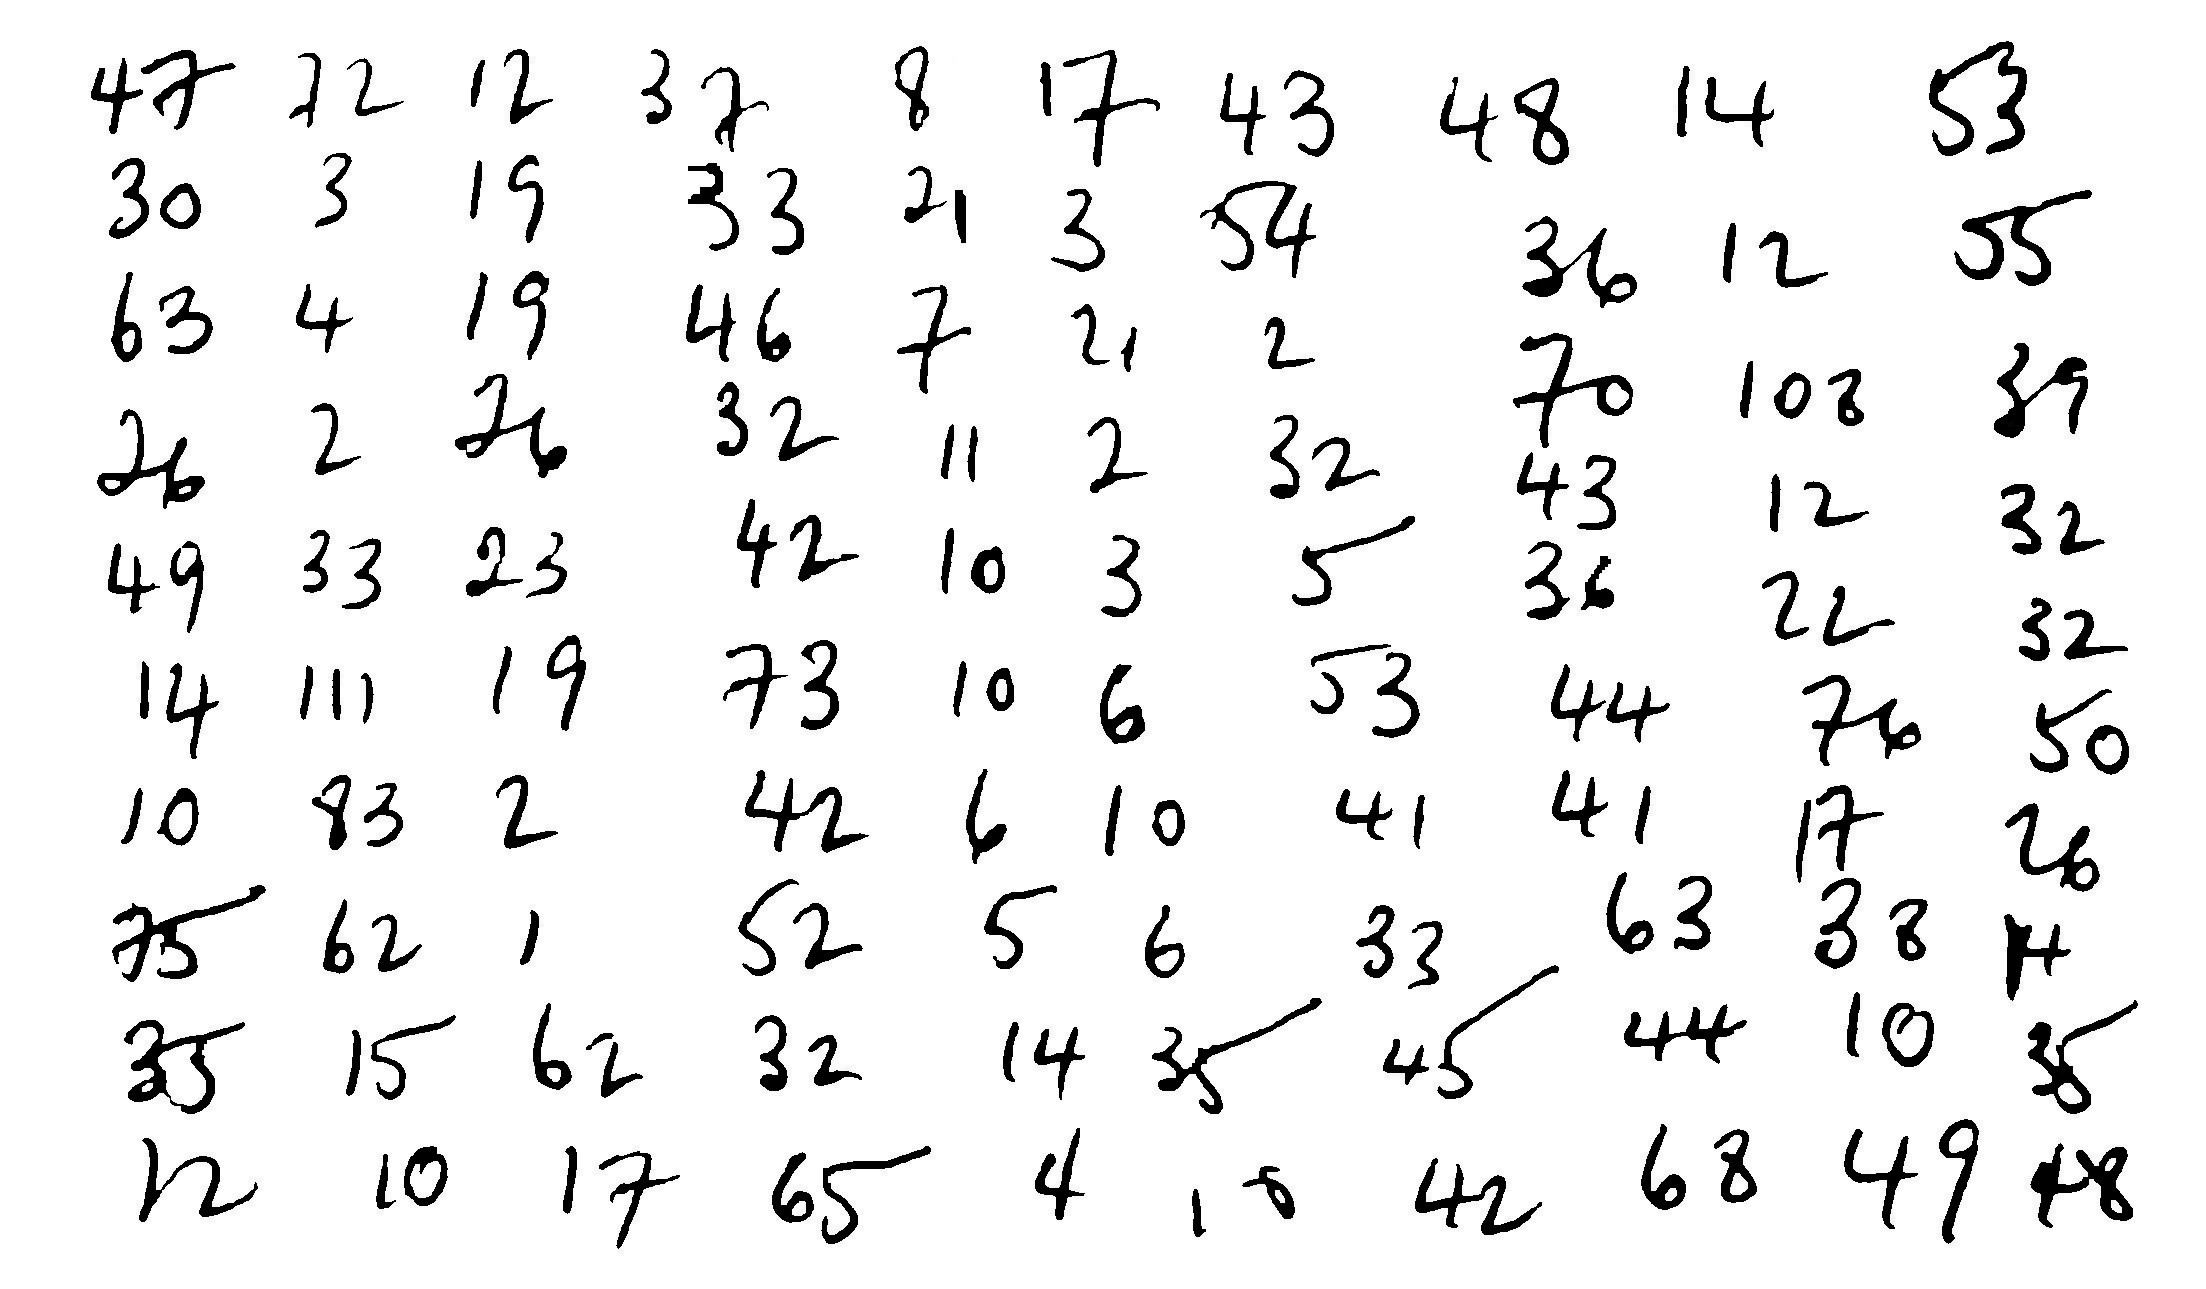 47 72 12 37 8 17 43 48 14 53
30 3 19 33 21 3 54 36 12 55
63 4 19 46 7 21 2 70 108 39
26 2 26 32 11 2 32 43 12 32
49 33 23 42 10 3 5 36 22 32
14 111 19 73 10 6 53 44 76 50
10 83 2 42 6 10 41 41 17 26
75 62 1 52 5 6 33 63 38 14
35 15 62 32 14 35 45 44 10 35
12 10 17 65 4 10 42 68 49 48